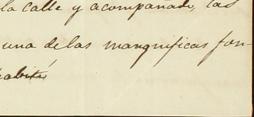 la calle y acompañado, las
una de las mangnificas fon-
habités